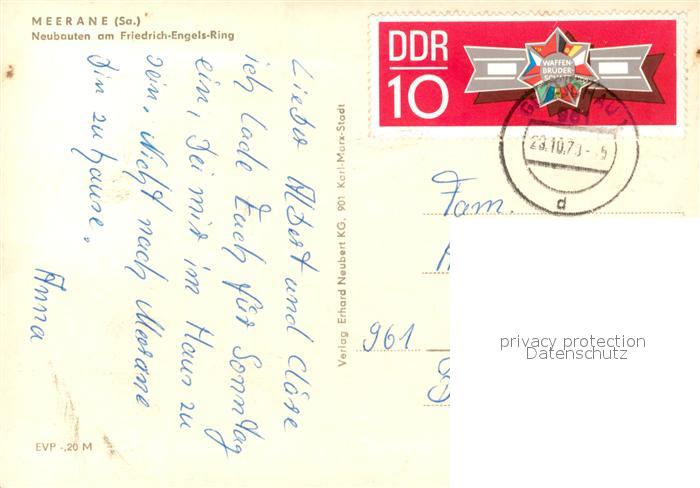 MEERANE (Sa.)
Neubauten am Friedrich-Engels-Ring
Lieber Albert und Cläre
ich lade Euch für Sonntag
ein, bei mir im Haus zu
sein. Nicht nach Meerane
bin zu hause.
Anna
EVP -,20 M
Verlag Erhard Neubert KG, 901 Karl-Marx-Stadt
DDR
10
WAFFEN-
BRÜDER-
23.10.70
d
Fam.
961
privacy protection
Datenschutz